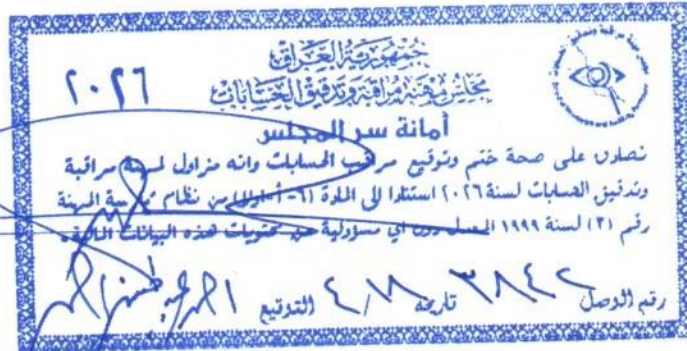 جمهورية العراق
مجلس مهنة مراقبة وتدقيق الحسابات
٢٠٢٦
أمانة سر المجلس
نصادق على صحة ختم وتوقيع مراقب الحسابات وانه مزاول لمهنة مراقبة
وتدقيق الحسابات لسنة ٢٠٢٦ استنادا الى المادة (٦- أ من نظام ممارسة المهنة
رقم (٣) لسنة ١٩٩٩ المعدل دون اي مسؤولية عن محتويات هذه البيانات المالية.
رقم الوصل ٣٨٤٢ تاريخه ٤/ التوقيع